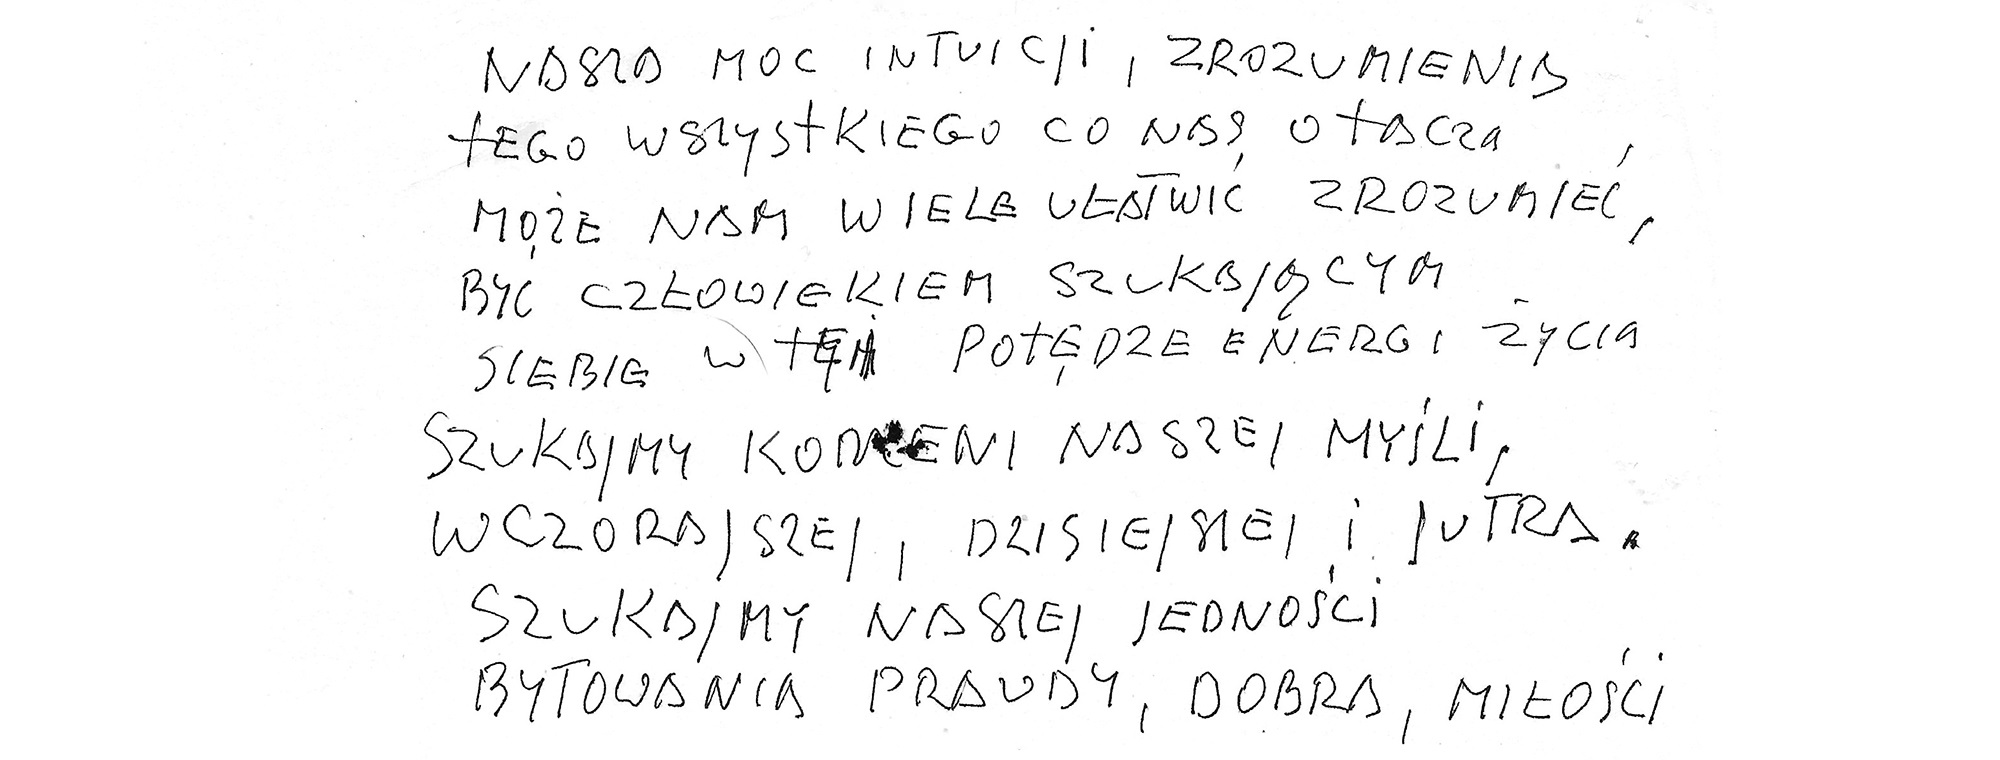 NASZA MOC INTUICJI, ZROZUMIENIA
TEGO WSZYSTKIEGO CO NAS, OTACZA
MOŻE NAM WIELE UŁATWIĆ ZROZUMIEĆ,
BYĆ CZŁOWIEKIEM SZUKAJĄCYM
SIEBIE W TEJ POTĘDZE ENERGI ŻYCIA
SZUKAJMY KORZENI NASZEJ MYŚLI,
WCZORAJSZEJ, DZISIEJSZEJ I JUTRA.
SZUKAJMY NASZEJ JEDNOŚCI
BYTOWANIA PRAWDY, DOBRA, MIŁOŚCI